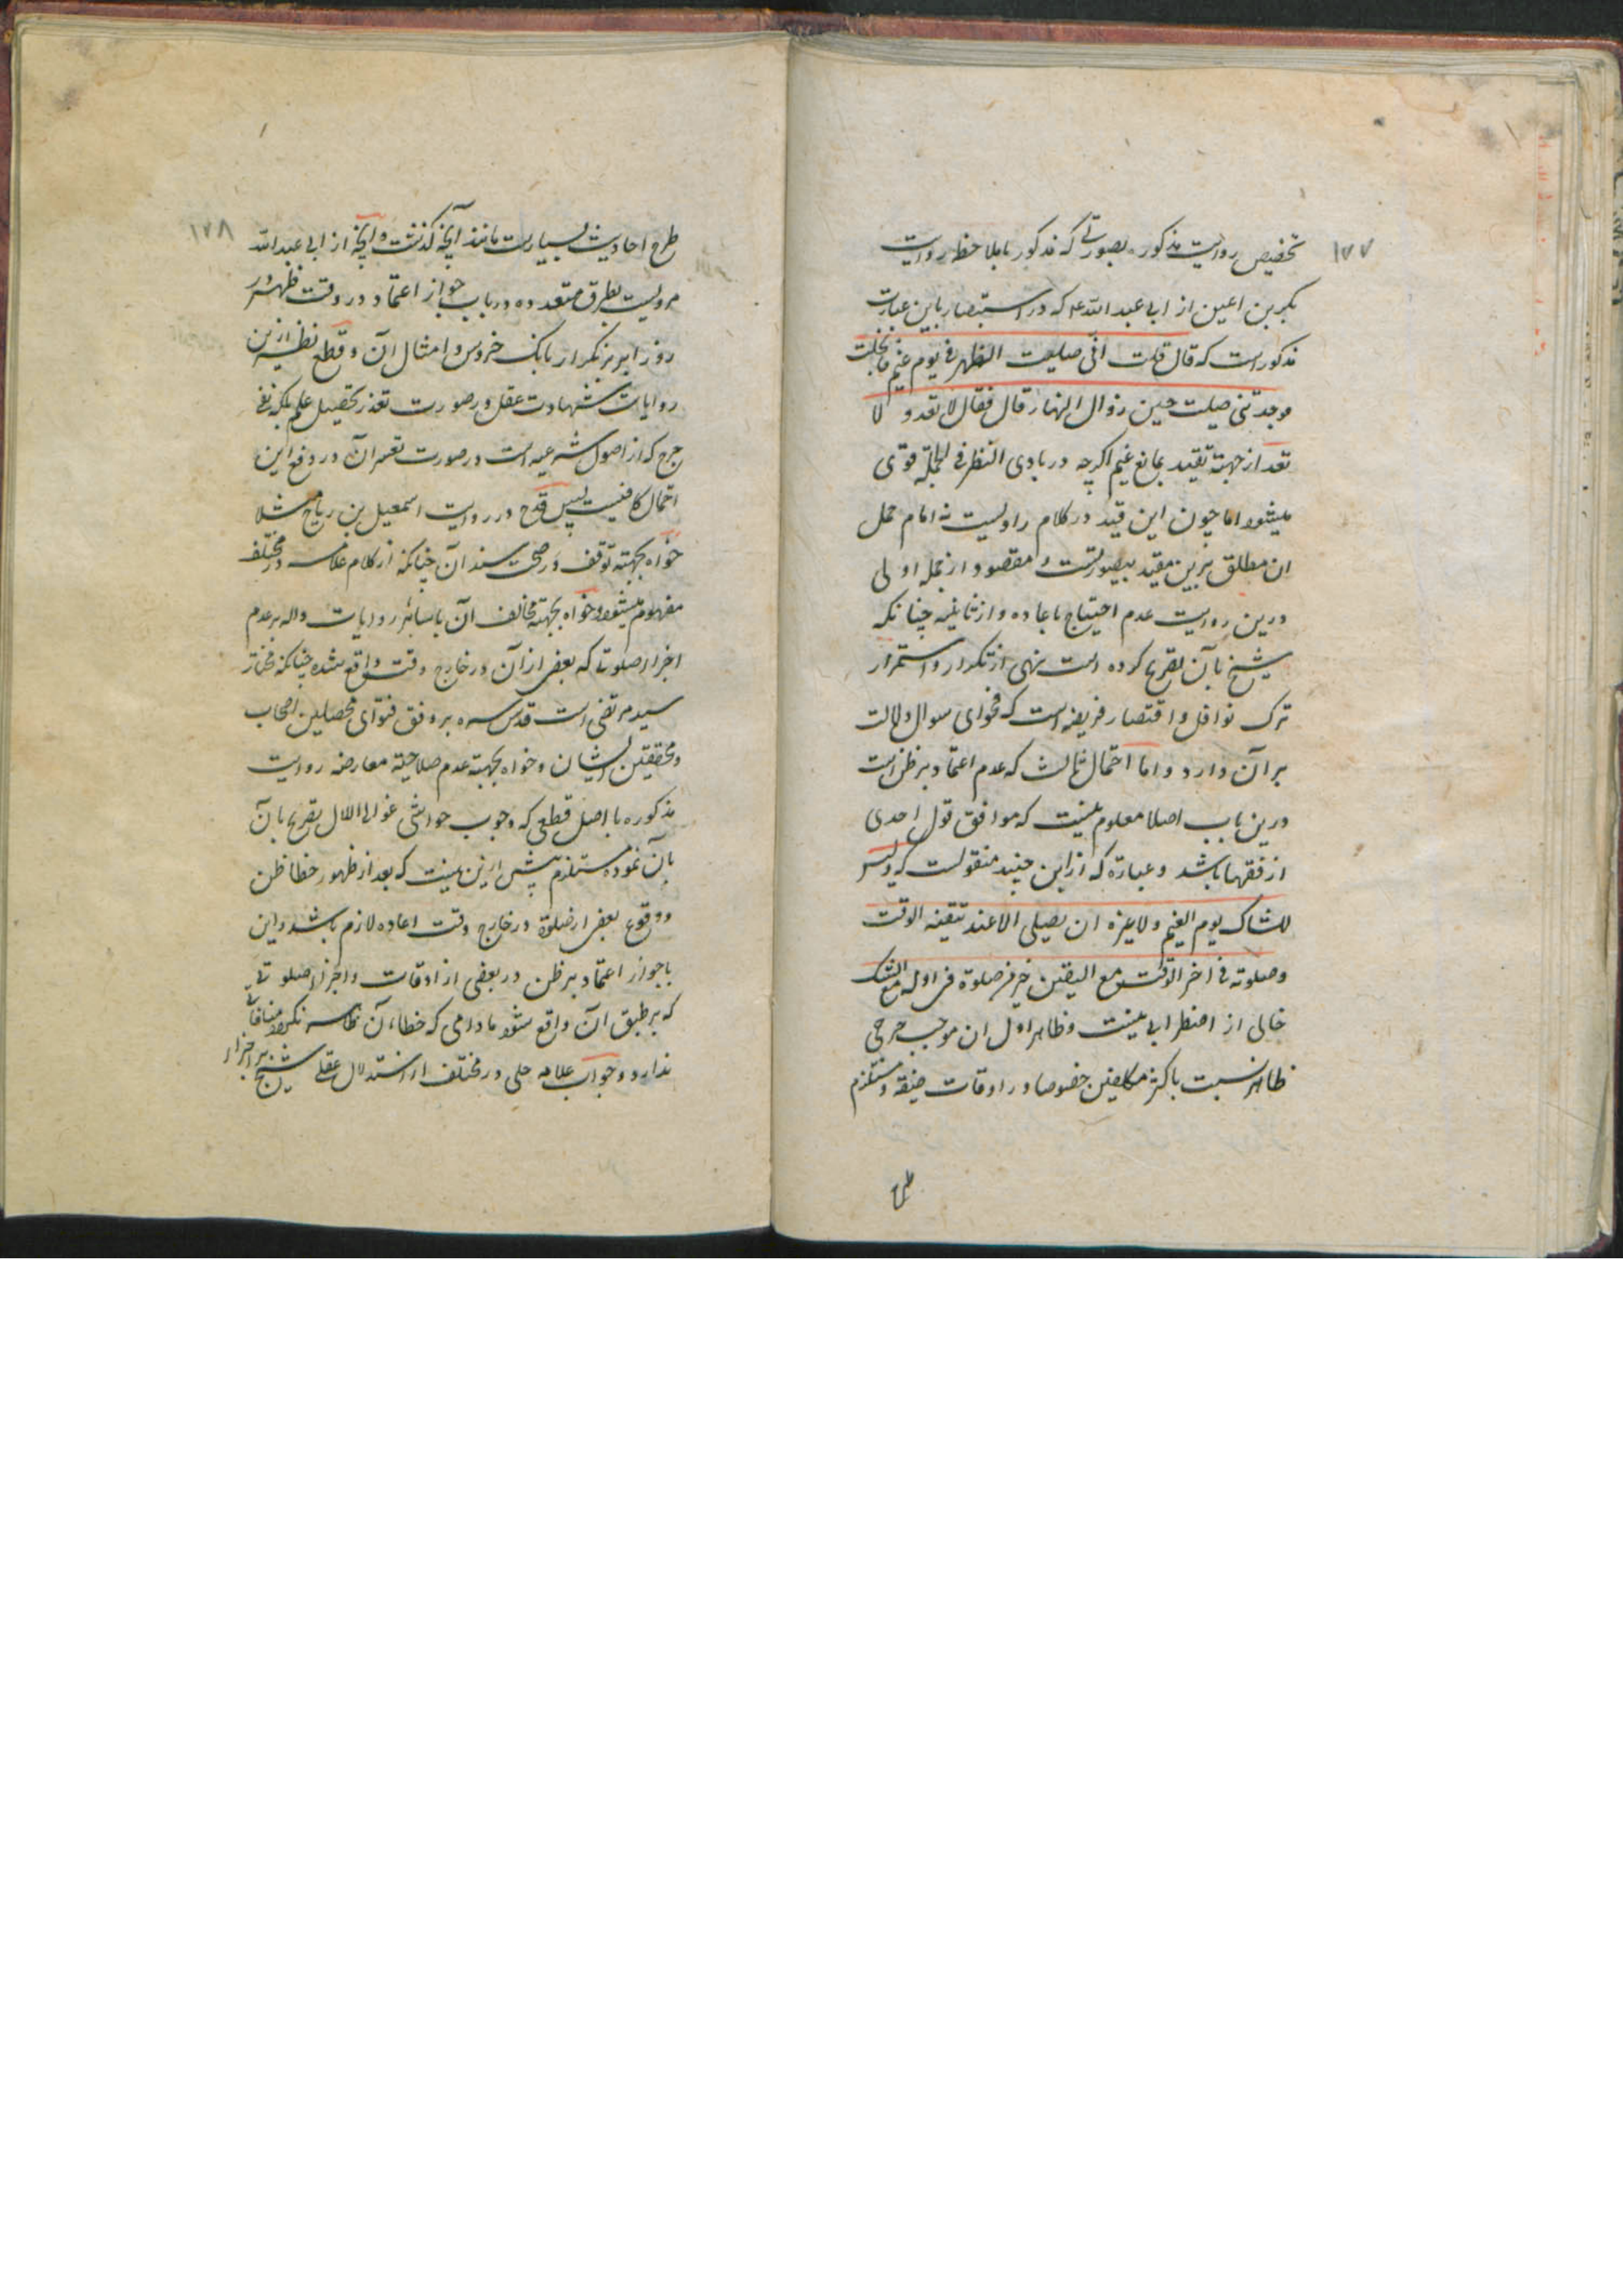 ۱۷۷
تخصیص روایت مذکور بصورتی که مذکور با ملاحظه روایت
بکر بن اعین از ابی عبد الله ع که در استبصار باین عبارت
مذکور است که قال قلت انی صلیت الظهر فی یوم غیم فانجلت
فوجدتنی صلیت حین زوال النهار قال فقال لا تعد و لا
تعد از جهته تقیید بمانع غیم اکرچه در بادی النظر فی الجمله قوتی
میشود اما چون این قید در کلام راویست نه امام حمل
ان مطلق برین مقید بیصورتست و مقصود از جمله اولی
درین روایت عدم احتیاج باعاده و از ثانیه چنانکه
شیخ بآن تصریح کرده است نهی از تکرار و استمرار
ترک نوافل و اقتصار فریضه است که فحوای سوال دلالت
بر آن دارد و اما احتمال ثالث که عدم اعتماد بر ظن است
درین باب اصلا معلوم نیست که موافق قول احدی
از فقها باشد و عبارة که از ابن جنید منقولست که و لیس
للشاک یوم الغیم و لا غیره ان یصلی الا عند تیقنه الوقت
و صلوته فی اخر الوقت مع الیقین خیر من صلوة فی اوله مع الشک
خالی از اضطرابی نیست و ظاهر اول ان موجب حرجی
ظاهر نسبت باکثر مکلفین خصوصا در اوقات ضیقه و مستلزم
طرح
۱۷۸
طرح احادیث بسیارست مانند آنچه کذشت و آنچه از ابی عبد الله
مرویست بطرق متعدده در باب جواز اعتماد در وقت ظهر در
روز ابر بر تکرار بانک خروس و امثال آن و قطع نظر ازین
روایات شهادت عقل در صورت تعذر تحصیل علم بلکه نفی
حرج که از اصول شرعیه است در صورت تعسر آن در دفع این
احتمال کافیست پس قدح در روایت اسمعیل بن ریاح مثلا
خواه بجهته توقف در صحت سند آن چنانکه از کلام علامه در مختلف
مفهوم میشود و خواه بجهته مخالف آن با سائر روایات داله بر عدم
اجزاء صلوتی که بعض از آن در خارج وقت واقع شده چنانکه مختار
سید مرتضی است قدس سره بر وفق فتوای محصلین اصحاب
و محققین ایشان و خواه بجهته عدم صلاحیة معارضه روایت
مذکوره با اصل قطعی که وجوب حواشی غوالی اللال تصریح بآن
بآن نموده مستلزم پیش ازین نیست که بعد از ظهور خطا ظن
و وقوع بعض از صلوة در خارج وقت اعاده لازم باشد و این
با جواز اعتماد بر ظن در بعضی از اوقات و اجزاء صلوتی
که بر طبق آن واقع شود مادامی که خطاء آن ظاهر نکردد منافاتی
ندارد و جواب علامه حلی در مختلف از استدلال عقلی شیخ بر اجزاء